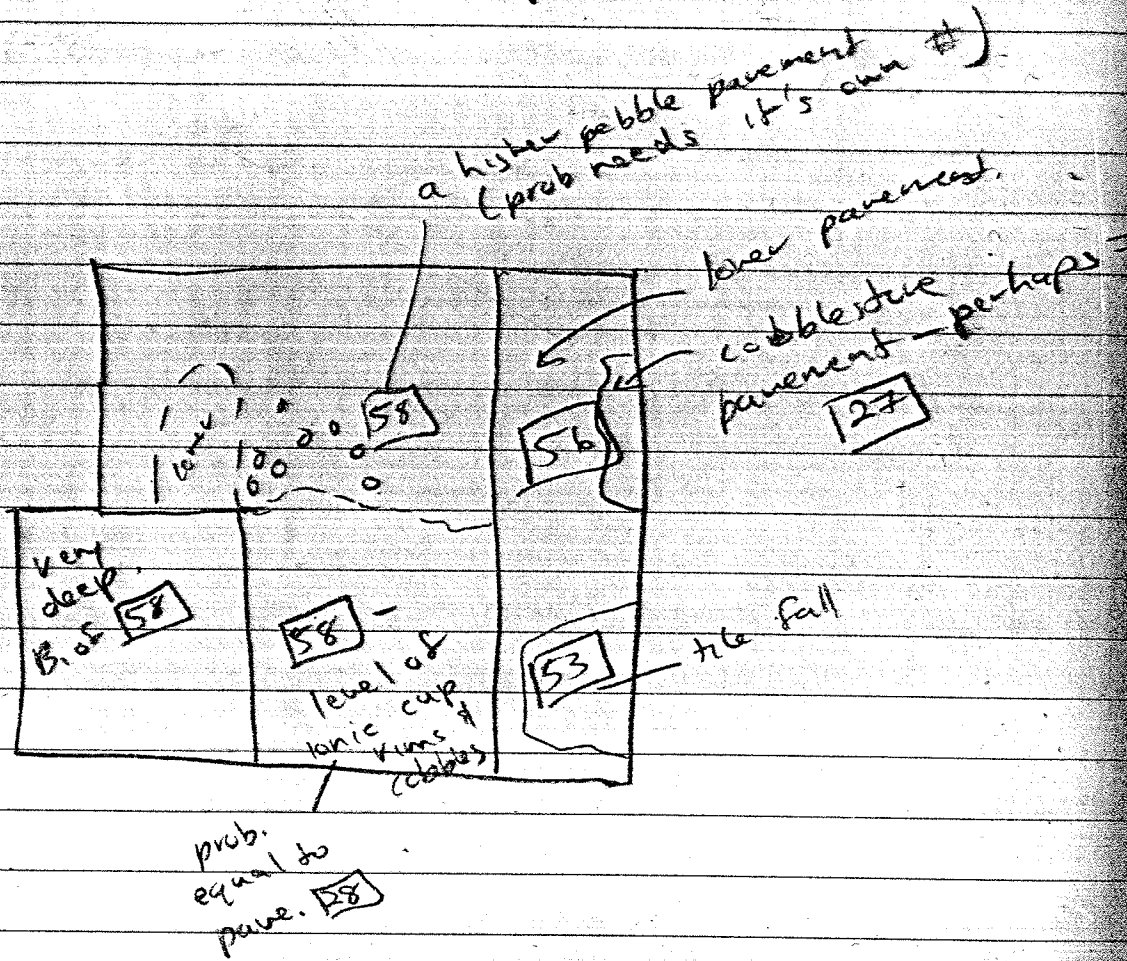 a higher pebble pavement
(prob needs it's own #)
lower pavement.
cobblestone
pavement - perhaps -
127
58
lower
56
very
deep.
B. of 58
58 -
level of
ionic cup
rims &
cobbles
53
tile fall
prob.
equal to
pave. 28